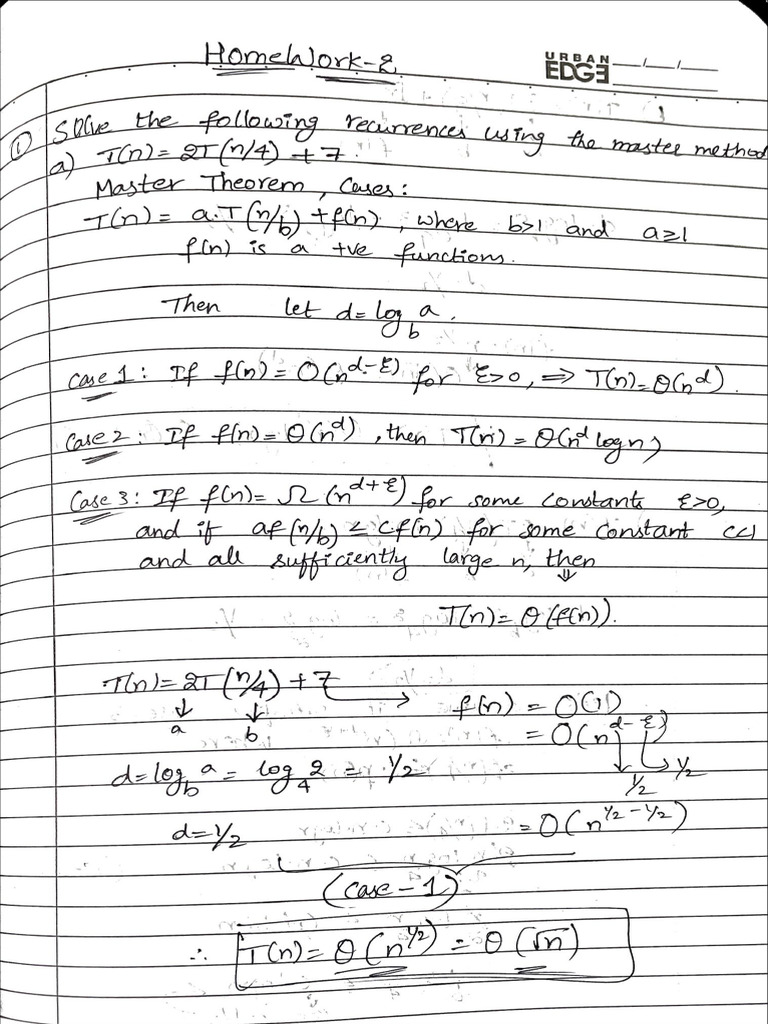 HomeWork-2
URBAN EDGE
① Solve the following recurrences using the master method
a) T(n) = 2T(n/4) + 7.
Master Theorem, Cases:
T(n) = a.T(n/b) + f(n), where b>1 and a≥1
f(n) is a +ve functions.
Then let d = log_b a.
Case 1: If f(n) = O(n^{d-ε}) for ε>0, ⇒ T(n) = Θ(n^d).
Case 2: If f(n) = Θ(n^d), then T(n) = Θ(n^d log n)
Case 3: If f(n) = Ω(n^{d+ε}) for some constants ε>0,
and if af(n/b) ≤ cf(n) for some constant c<1
and all sufficiently large n, then
⇓
T(n) = Θ(f(n)).
T(n) = 2T(n/4) + 7 → f(n) = O(1)
↓ a ↓ b = O(n^{d-ε})
d = log_b a = log_4 2 = 1/2 ↓ 1/2 ↳ 1/2
d = 1/2 = O(n^{1/2-1/2})
(Case-1)
∴ T(n) = Θ(n^{1/2}) = Θ(√n)